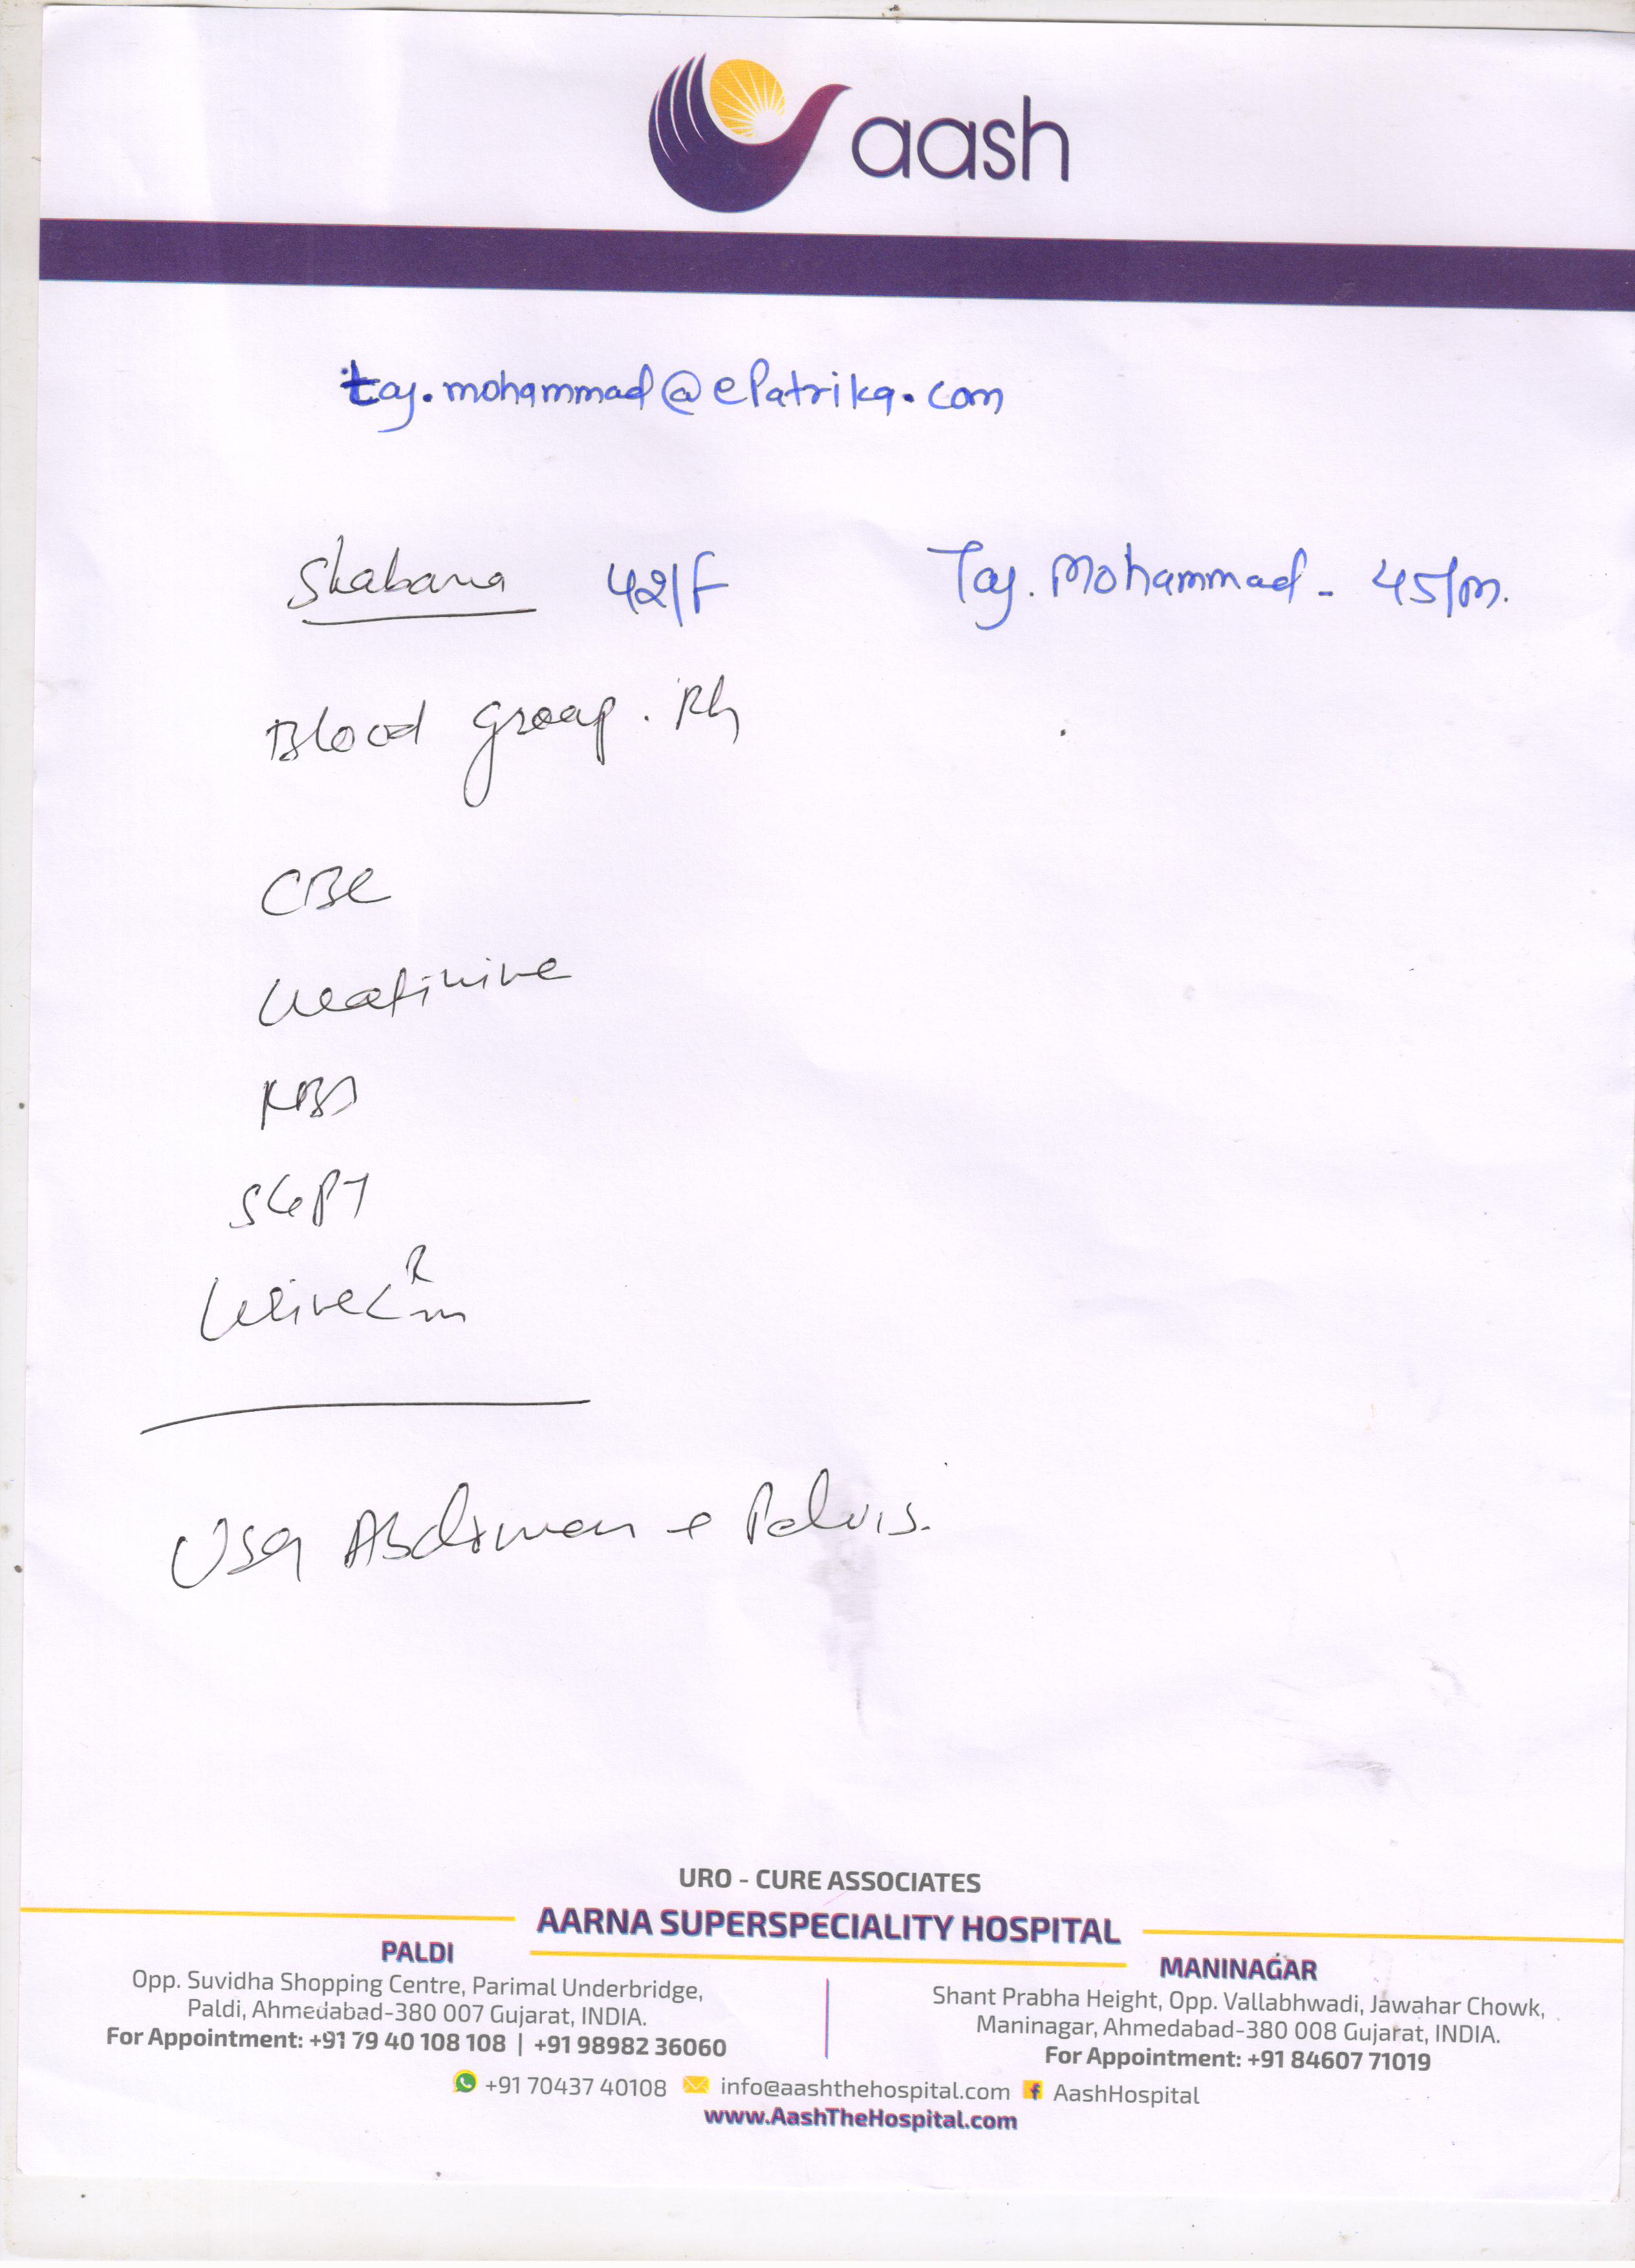 aash
taj.mohammad@epatrika.com
Shabana 42/F Taj. Mohammad - 45/m.
Blood group. Rh
CBC
Creatinine
RBS
SGPT
Urine R/m
USG Abdomen & Pelvis.
URO - CURE ASSOCIATES
AARNA SUPERSPECIALITY HOSPITAL
PALDI
Opp. Suvidha Shopping Centre, Parimal Underbridge,
Paldi, Ahmedabad-380 007 Gujarat, INDIA.
For Appointment: +91 79 40 108 108 | +91 98982 36060
MANINAGAR
Shant Prabha Height, Opp. Vallabhwadi, Jawahar Chowk,
Maninagar, Ahmedabad-380 008 Gujarat, INDIA.
For Appointment: +91 84607 71019
+91 70437 40108 info@aashthehospital.com f AashHospital
www.AashTheHospital.com